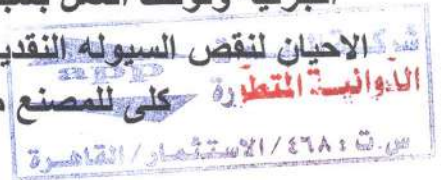 الاحيان لنقص السيوله النقدي
الدوائية المتطورة
كلى للمصنع
س.ت : ٤٦٨ / الاستثمار / القاهرة